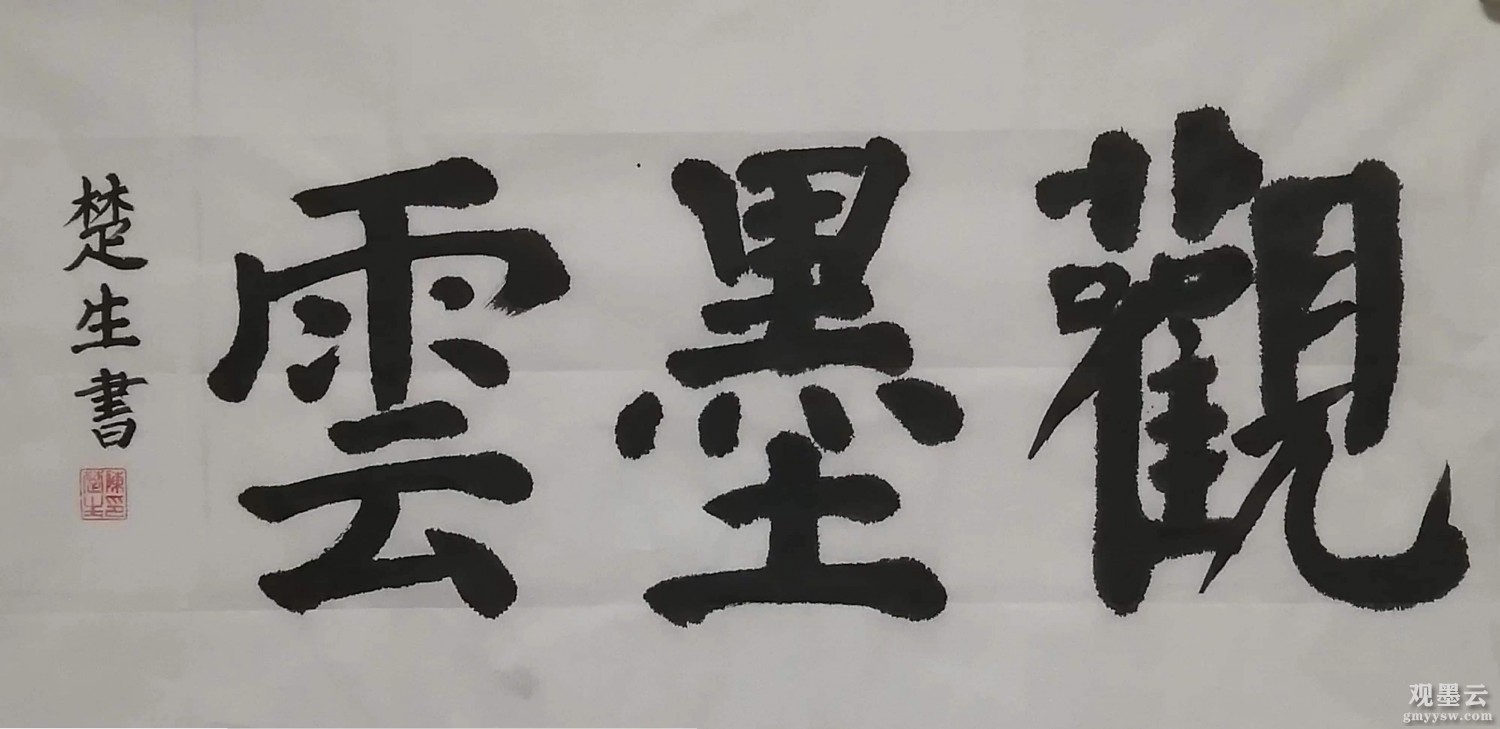 觀墨雲
楚生書
陳楚生印
观墨云
gmyysw.com